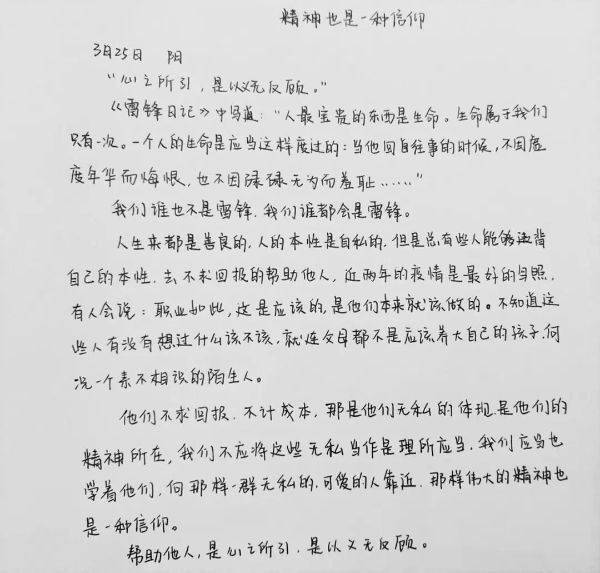 精神也是一种信仰
3月25日 阳
“心之所引，是以义无反顾。”
《雷锋日记》中写道：“人最宝贵的东西是生命。生命属于我们
只有一次。一个人的生命是应当这样度过的：当他回首往事的时候，不因虚
度年华而悔恨，也不因碌碌无为而羞耻……”
我们谁也不是雷锋，我们谁都会是雷锋。
人生来都是善良的，人的本性是自私的，但是总有些人能够违背
自己的本性，去不求回报的帮助他人，近两年的疫情是最好的写照，
有人会说：职业如此，这是应该的，是他们本来就该做的。不知道这
些人有没有想过什么该不该，就连父母都不是应该养大自己的孩子，何
况一个素不相识的陌生人。
他们不求回报，不计成本，那是他们无私的体现，是他们的
精神所在，我们不应将这些无私当作是理所应当，我们应当也
学着他们，向那样一群无私的，可爱的人靠近，那样伟大的精神也
是一种信仰。
帮助他人，是心之所引，是以义无反顾。